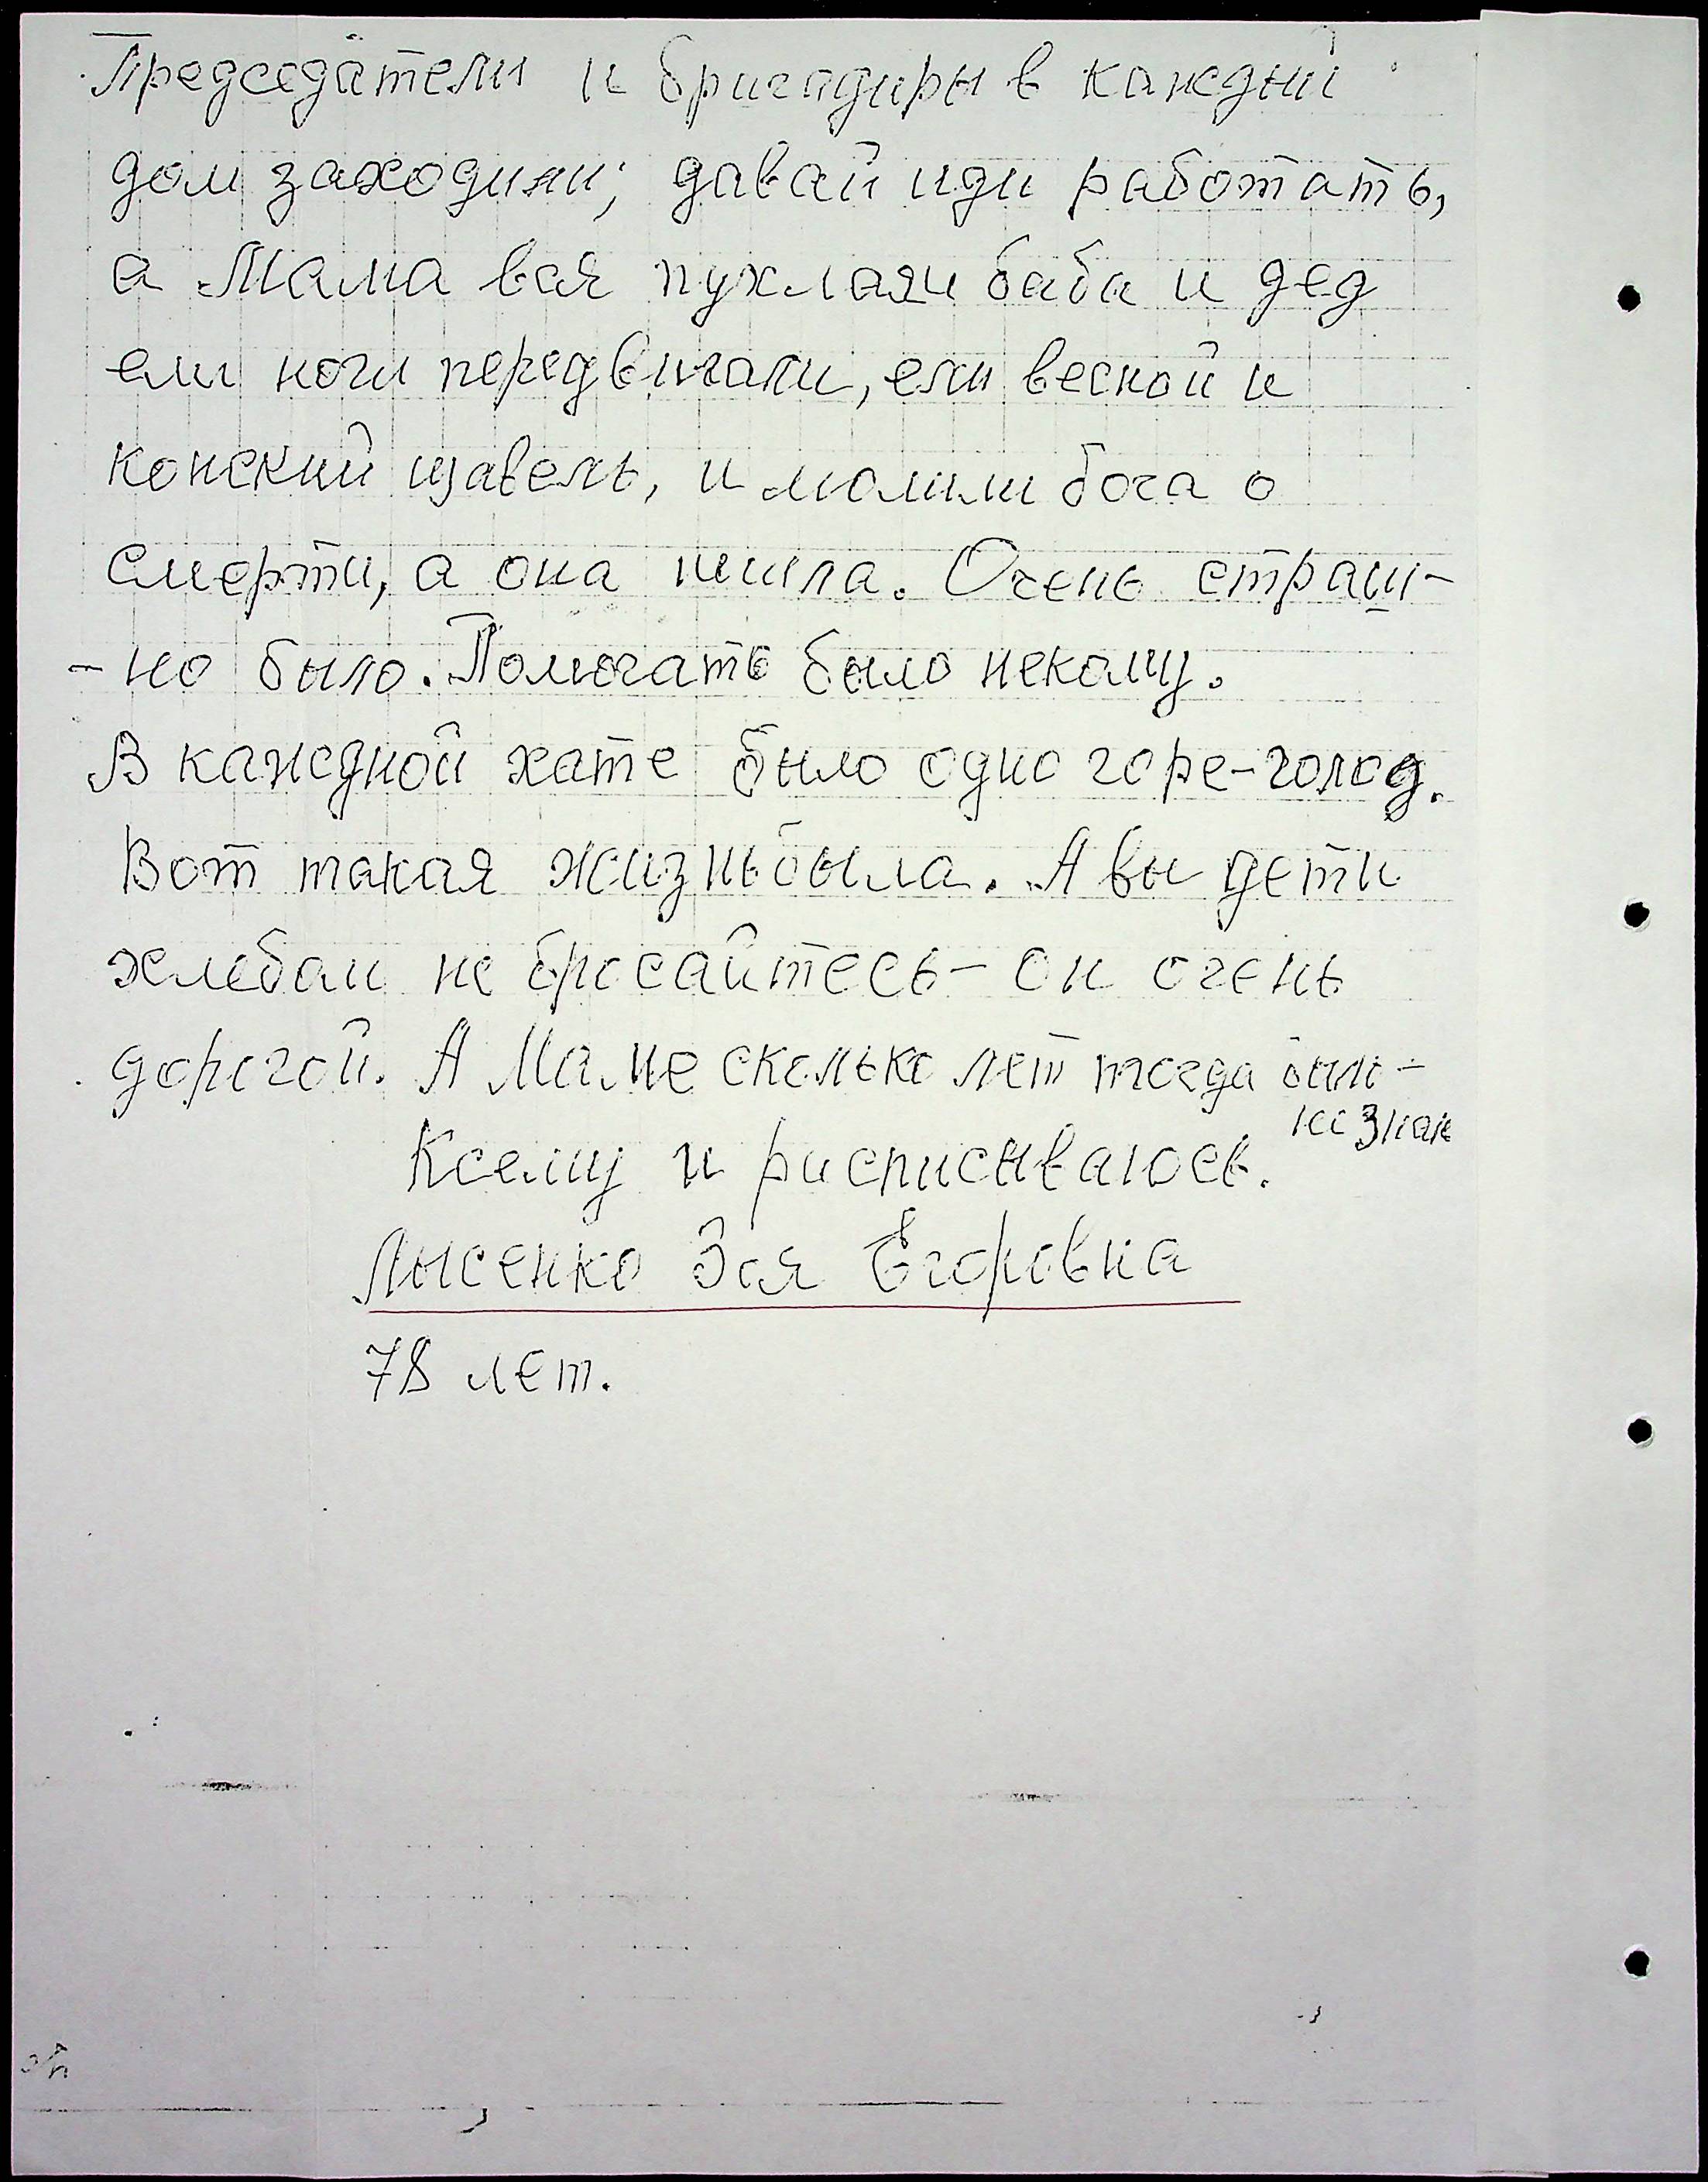 Председатели и бригадиры в каждый
дом заходили; давай иди работать,
а Мама вся пухлая и баба и дед
ели ноги передвигали, ели весной и
конский щавель, и молили бога о
смерти, а она ишла. Очень страш-
-но было. Помогать было некому.
В каждной хате было одно горе-голод.
Вот такая жизнь была. А вы дети
хлебом не бросайтесь - он очень
дорогой. А Маме сколько лет тогда было -
не знаю
К сему и расписываюсь.
Лысенко Зоя Егоровна
78 лет.